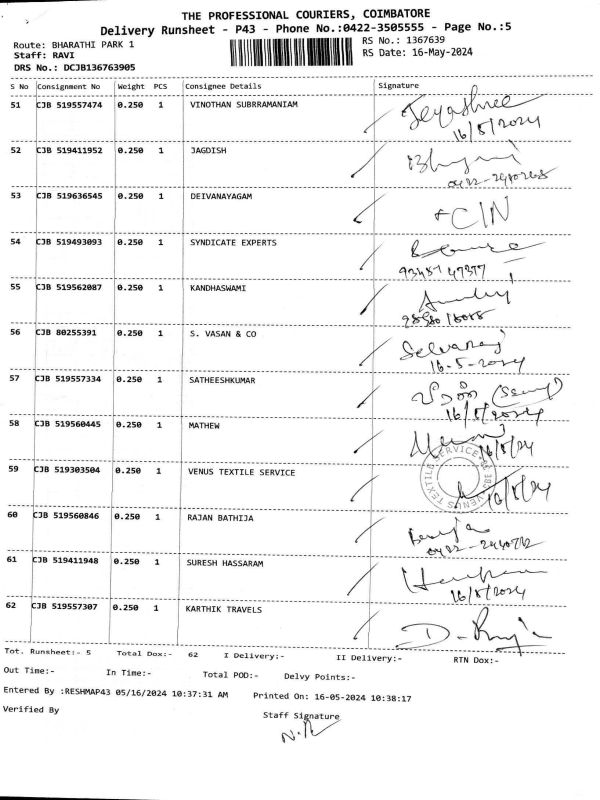 THE PROFESSIONAL COURIERS, COIMBATORE
Delivery Runsheet - P43 - Phone No.:0422-3505555 - Page No.:5
Route: BHARATHI PARK 1 RS No.: 1367639
Staff: RAVI RS Date: 16-May-2024
DRS No.: DCJB136763905
S No Consignment No Weight PCS Consignee Details Signature
51 CJB 519557474 0.250 1 VINOTHAN SUBRRAMANIAM Jeyashree
16/5/2024
52 CJB 519411952 0.250 1 JAGDISH
53 CJB 519636545 0.250 1 DEIVANAYAGAM
54 CJB 519493093 0.250 1 SYNDICATE EXPERTS
55 CJB 519562087 0.250 1 KANDHASWAMI
56 CJB 80255391 0.250 1 S. VASAN & CO Selvaraj
16-5-2024
57 CJB 519557334 0.250 1 SATHEESHKUMAR
16/5/2024
58 CJB 519560445 0.250 1 MATHEW
16/5/24
59 CJB 519303504 0.250 1 VENUS TEXTILE SERVICE
VENUS TEXTILE SERVICE
16/5/24
60 CJB 519560846 0.250 1 RAJAN BATHIJA
61 CJB 519411948 0.250 1 SURESH HASSARAM
16/5/2024
62 CJB 519557307 0.250 1 KARTHIK TRAVELS
Tot. Runsheet:- 5 Total Dox:- 62 I Delivery:- II Delivery:- RTN Dox:-
Out Time:- In Time:- Total POD:- Delvy Points:-
Entered By :RESHMAP43 05/16/2024 10:37:31 AM Printed On: 16-05-2024 10:38:17
Verified By Staff Signature